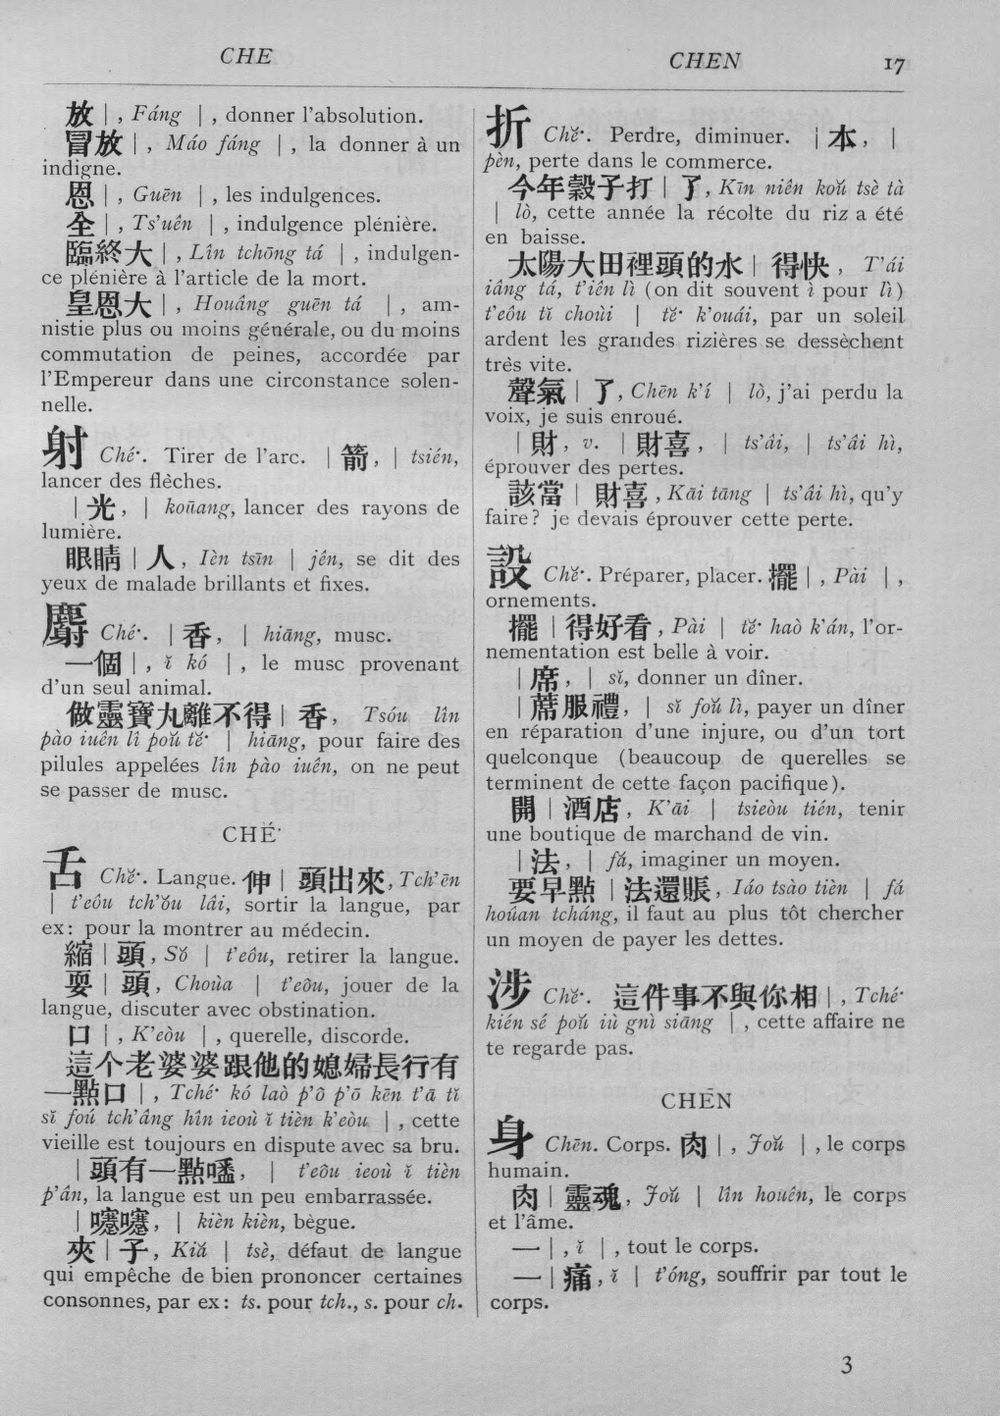 CHE
CHEN
17
放 | , Fáng | , donner l’absolution.
冒放 | , Máo fáng | , la donner à un
indigne.
恩 | , Guēn | , les indulgences.
全 | , Ts’uên | , indulgence plénière.
臨終大 | , Lîn tchōng tá | , indulgen-
ce plénière à l’article de la mort.
皇恩大 | , Houâng guēn tá | , am-
nistie plus ou moins générale, ou du moins
commutation de peines, accordée par
l’Empereur dans une circonstance solen-
nelle.
射 Ché·. Tirer de l’arc. | 箭, | tsién,
lancer des flèches.
| 光, | koūang, lancer des rayons de
lumière.
眼睛 | 人, Ièn tsīn | jên, se dit des
yeux de malade brillants et fixes.
麝 Ché·. | 香, | hiāng, musc.
一個 | , ĭ kó | , le musc provenant
d’un seul animal.
做靈寶丸離不得 | 香, Tsóu lîn
pào iuên lî poŭ tĕ· | hiāng, pour faire des
pilules appelées lîn pào iuên, on ne peut
se passer de musc.
CHĔ·
舌 Chĕ·. Langue. 伸 | 頭出來, Tch’ēn
| t’eôu tch’ŏu lâi, sortir la langue, par
ex: pour la montrer au médecin.
縮 | 頭, Sŏ | t’eôu, retirer la langue.
耍 | 頭, Choùa | t’eôu, jouer de la
langue, discuter avec obstination.
口 | , K’eòu | , querelle, discorde.
這个老婆婆跟他的媳婦長行有
一點口 | , Tché· kó laò p’ô p’ō kēn t’ā tĭ
sĭ foú tch’âng hîn ieoù ĭ tièn k’eòu | , cette
vieille est toujours en dispute avec sa bru.
| 頭有一點𠺗, | t’eôu ieoù ĭ tièn
p’ân, la langue est un peu embarrassée.
| 嚏嚏, | kièn kièn, bègue.
夾 | 子, Kiă | tsè, défaut de langue
qui empêche de bien prononcer certaines
consonnes, par ex: ts. pour tch., s. pour ch.
折 Chĕ·. Perdre, diminuer. | 本, |
pèn, perte dans le commerce.
今年穀子打 | 了, Kīn niên koŭ tsè tà
| lò, cette année la récolte du riz a été
en baisse.
太陽大田裡頭的水 | 得快, T’ái
iâng tá, t’iên lì (on dit souvent ì pour lì)
t’eôu tĭ choùi | tĕ· k’ouái, par un soleil
ardent les grandes rizières se dessèchent
très vite.
聲氣 | 了, Chēn k’í | lò, j’ai perdu la
voix, je suis enroué.
| 財, v. | 財喜, | ts’âi, | ts’âi hì,
éprouver des pertes.
該當 | 財喜, Kāi tāng | ts’âi hì, qu’y
faire? je devais éprouver cette perte.
設 Chĕ·. Préparer, placer. 擺 | , Pài | ,
ornements.
擺 | 得好看, Pài | tĕ· haò k’án, l’or-
nementation est belle à voir.
| 席, | sĭ, donner un dîner.
| 蓆服禮, | sĭ foŭ lì, payer un dîner
en réparation d’une injure, ou d’un tort
quelconque (beaucoup de querelles se
terminent de cette façon pacifique).
開 | 酒店, K’āi | tsieòu tién, tenir
une boutique de marchand de vin.
| 法, | fă, imaginer un moyen.
要早點 | 法還賬, Iáo tsào tièn | fá
hoûan tcháng, il faut au plus tôt chercher
un moyen de payer les dettes.
涉 Chĕ·. 這件事不與你相 | , Tché·
kién sé poŭ iù gnì siāng | , cette affaire ne
te regarde pas.
CHĒN
身 Chēn. Corps. 肉 | , Joŭ | , le corps
humain.
肉 | 靈魂, Joŭ | lîn houên, le corps
et l’âme.
一 | , ĭ | , tout le corps.
一 | 痛, ĭ | t’óng, souffrir par tout le
corps.
3